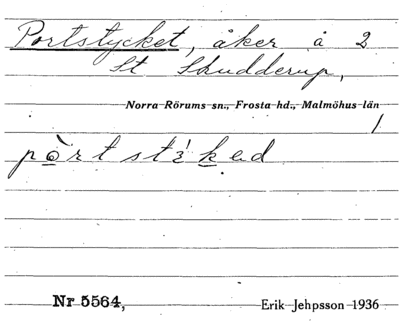 Portstycket, åker å 2
St Skudderup,
Norra Rörums sn., Frosta hd., Malmöhus län
1
pòrtstýkad
Nr 5564,
Erik Jehpsson 1936